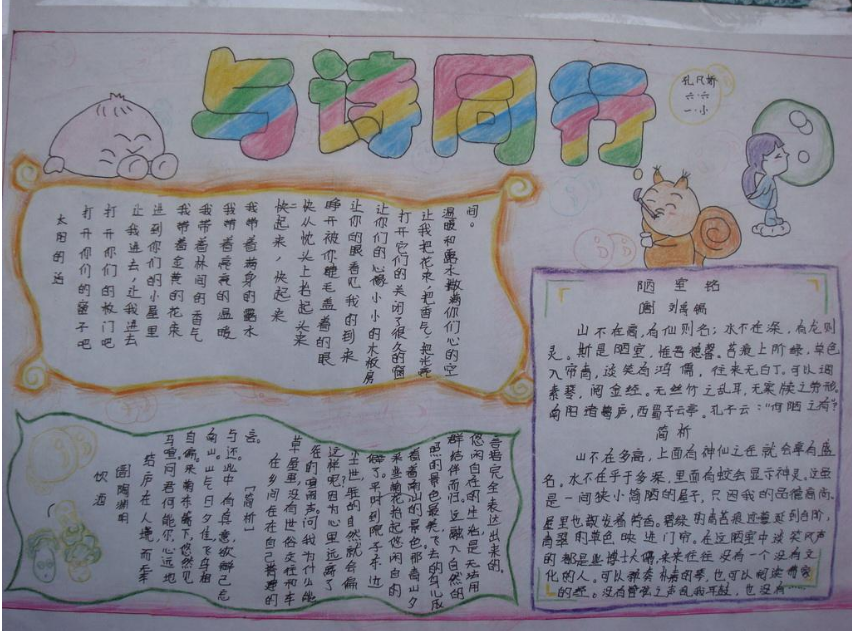 与诗同行
孔凡娇
六·六
一·小
太阳的话
打开你们的窗子吧
打开你们的板门吧
让我进去,让我进去
进到你们的小屋里
我带着金黄的花束
我带着林间的香气
我带着亮亮的温暖
我带着满身的露水
快起来,快起来
快从枕头上抬起头来
睁开被你睫毛盖着的眼
让你的眼看见我的到来
让你们的心像小小的木板房
打开它们的关闭了很久的窗
让我把花束,把香气,把光亮
温暖和露水撒满你们心的空
间。
饮酒
陶渊明
结庐在人境,而车
马喧问君何能尔,心远地
自偏。采菊东篱下,悠然见
南山。山气日夕佳飞鸟相
与还。此中有真意欲辩己忘
言。【简析】
在乡间在在自己搭建的
草屋里,没有世俗交往和车
的喧闹声,问我为什么能
这样呢,因为心里远离了
尘世,的自然就会偏
僻了。平时到院子东边
采些菊花抬起悠闲自的
看着南山的景色那看山夕
照的景色最美,飞去的鸟儿成
群结伴而归,这融入自然的
悠闲自在的生活是无法用
言语完全表达出来的。
陋室铭
刘禹锡
山不在高,有仙则名;水不在深,有龙则
灵。斯是陋室,惟吾德馨。苔痕上阶绿,草色
入帘青,谈笑有鸿儒,往来无白丁,可以调
素琴,阅金经。无丝竹之乱耳,无案牍之劳形。
南阳诸葛庐,西蜀子云亭。孔子云:“何陋之有?”
简析
山不在多高,上面有神仙之迹就会享有盛
名。水不在乎于多深,里面有蛟会显示神灵。这里
是一间狭小简陋的屋子,只因我的品德高尚。
屋里也散发着馨香。碧绿的青苔痕迹蔓延到台阶,
青翠的草色映进门帘。在这陋室中谈笑风声
的都是些博士大儒,来来往往没有一个没有文
化的人。可以弹奏朴素的琴,也可以阅读
的经。没有管弦之声乱我耳朵,也没有